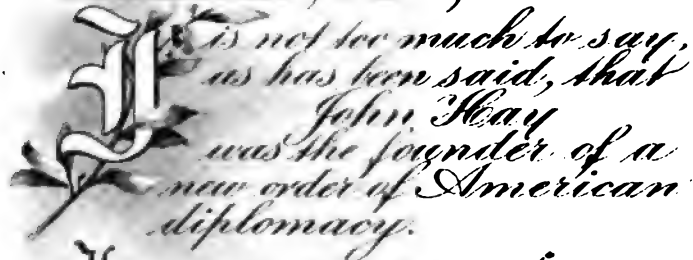 It is not too much to say,
as has been said, that
John Hay
was the founder of a
new order of American
diplomacy.